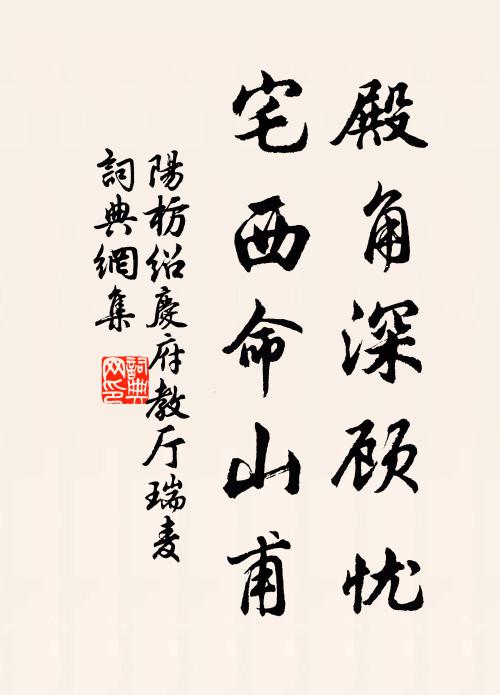 殿角深顾忧
宅西命山甫
陽枋绍慶府教厅瑞麦
詞典網集
詞典網印